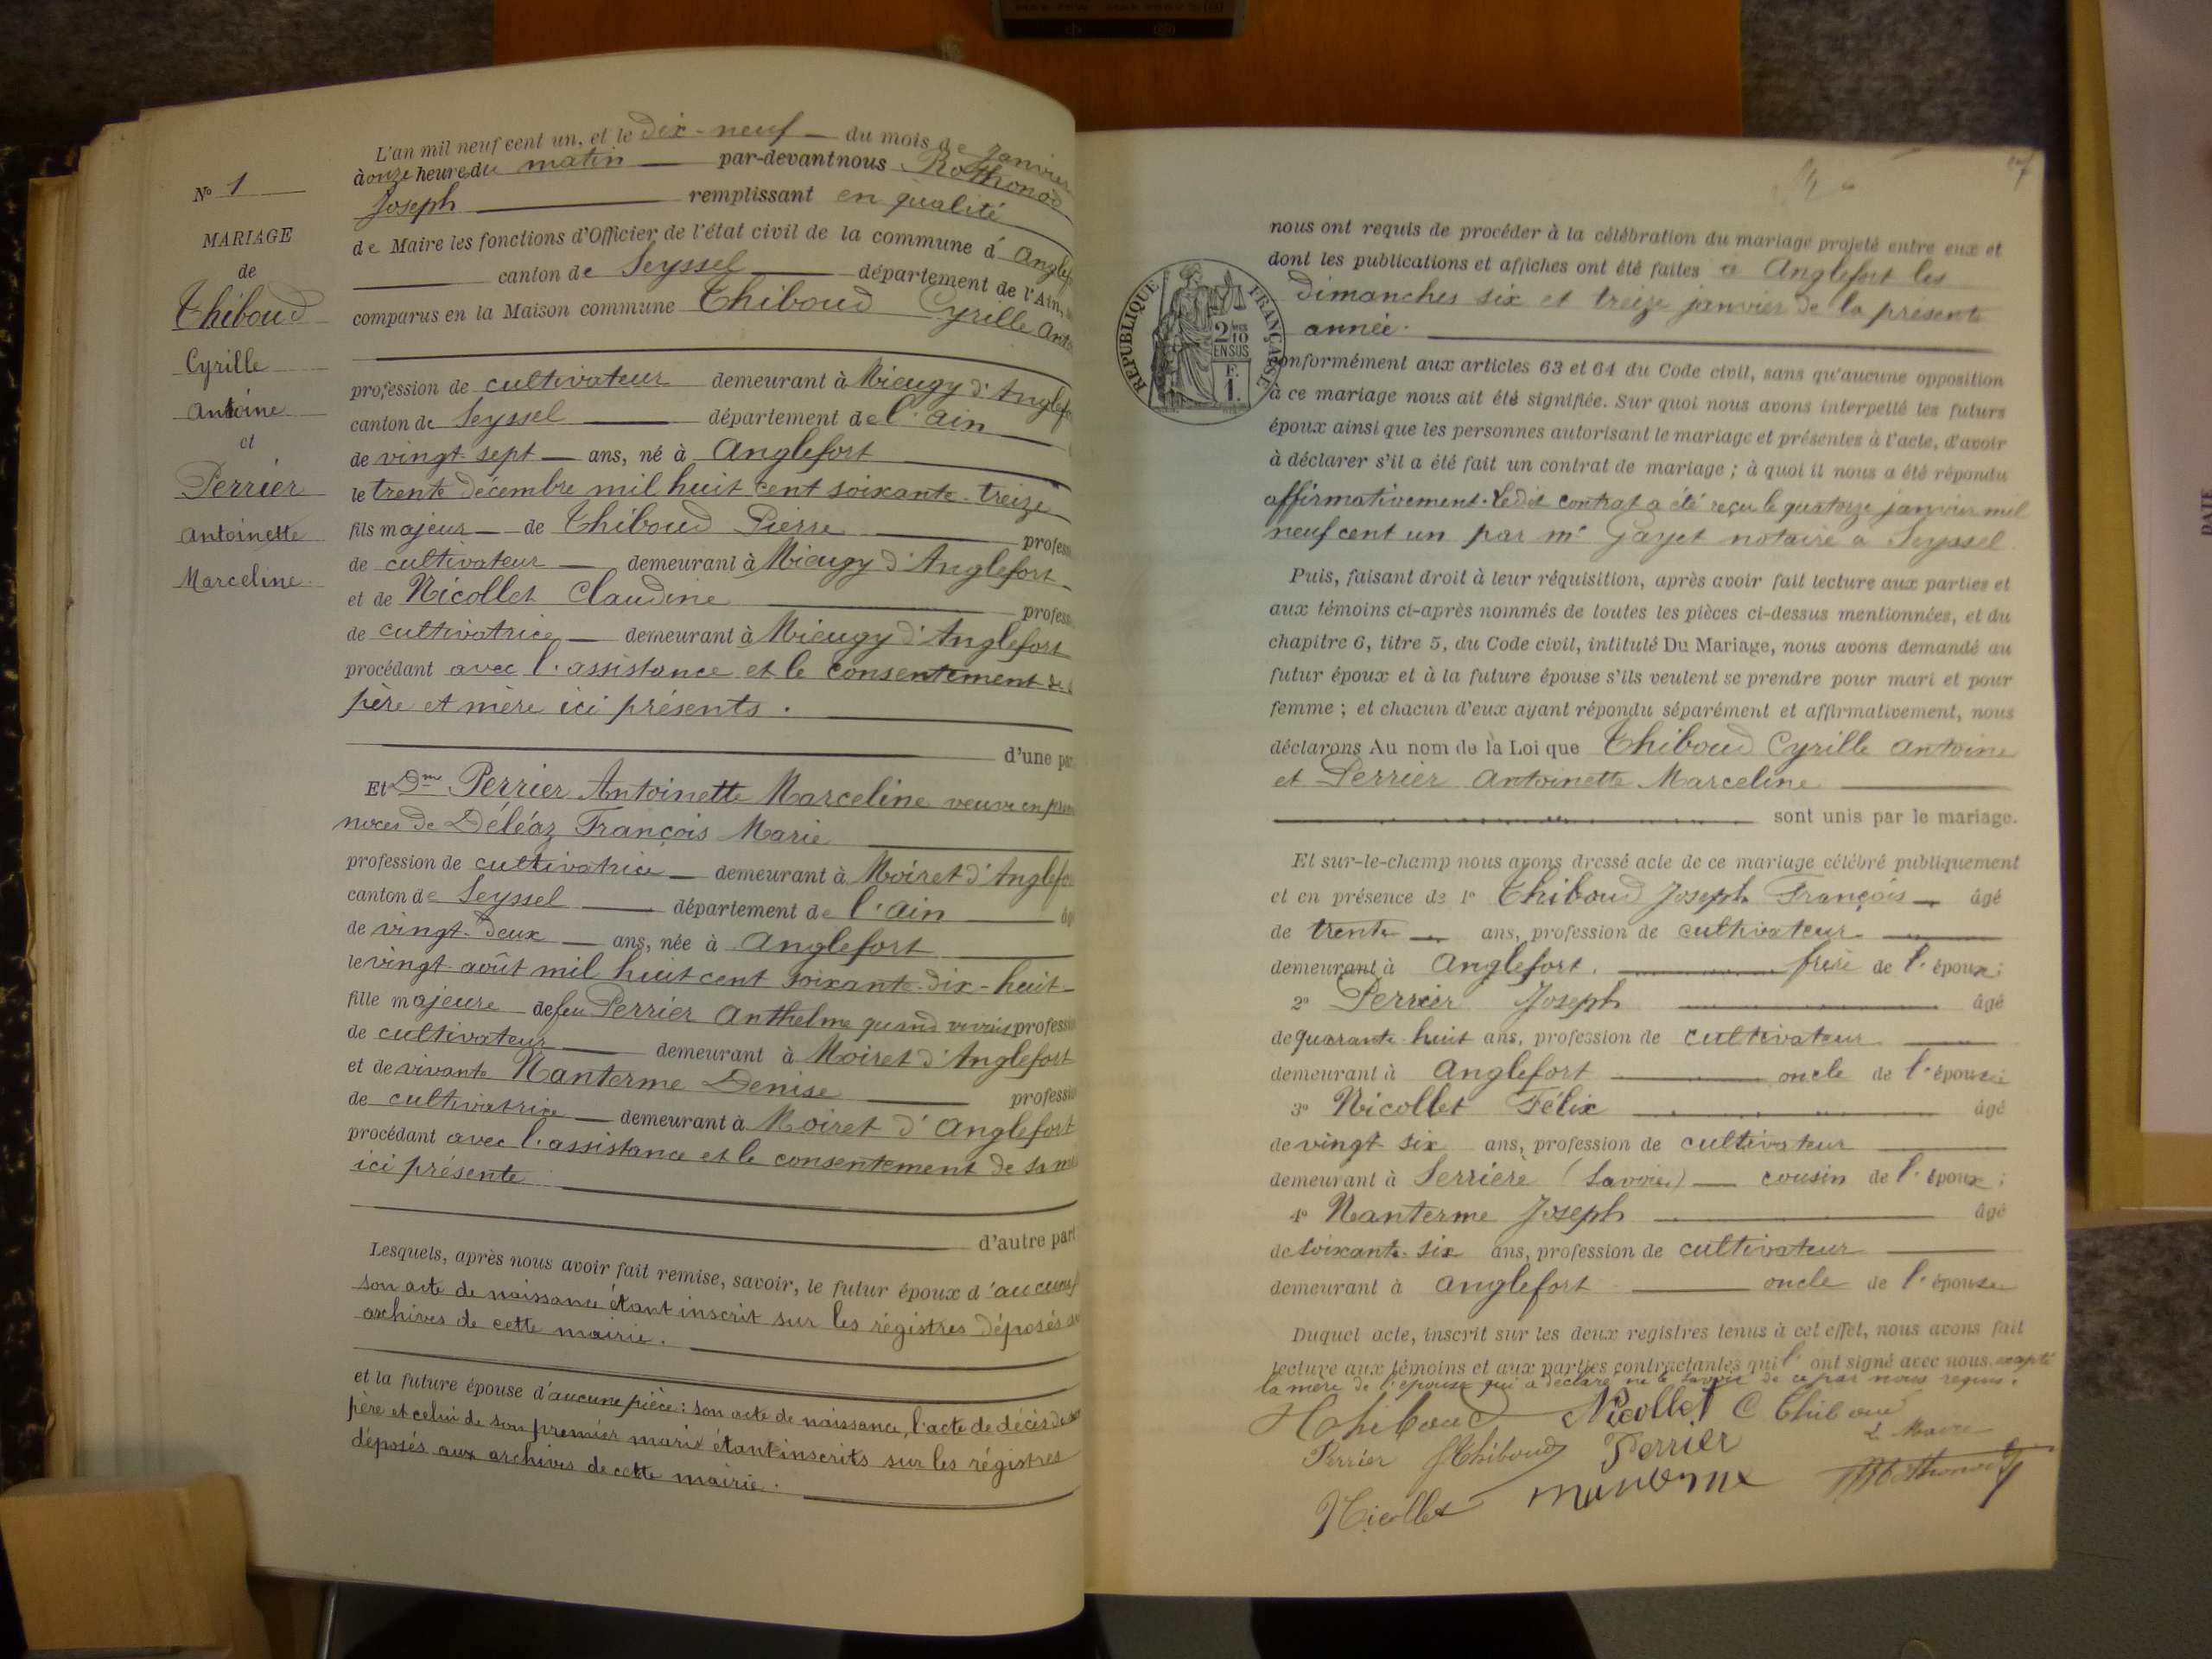 N° 1
MARIAGE
de
Thiboud
Cyrille
Antoine
et
Perrier
Antoinette
Marceline
L'an mil neuf cent un, et le dix-neuf du mois de janvier
à onze heure du matin par-devant nous Rothonod
Joseph remplissant en qualité
de Maire les fonctions d'Officier de l'état civil de la commune d'Anglef
canton de Seyssel département de l'Ain,
comparus en la Maison commune Thiboud Cyrille Anto
profession de cultivateur demeurant à Mieugy d'Anglefo
canton de Seyssel département de l'Ain
de vingt-sept ans, né à Anglefort
le trente décembre mil huit cent soixante-treize
fils majeur de Thiboud Pierre profess
de cultivateur demeurant à Mieugy d'Anglefort
et de Nicollet Claudine profess
de cultivatrice demeurant à Mieugy d'Anglefort
procédant avec l'assistance et le consentement de
père et mère ici présents.
d'une par
Et Dme Perrier Antoinette Marceline veuve en prem
noces de Déléaz François Marie
profession de cultivatrice demeurant à Moiret d'Anglefo
canton de Seyssel département de l'Ain âg
de vingt-deux ans, née à Anglefort
le vingt août mil huit cent soixante-dix-huit
fille majeure de feu Perrier Anthelme quand vivait profession
de cultivateur demeurant à Moiret d'Anglefort
et de vivante Nanterme Denise profession
de cultivatrice demeurant à Moiret d'Anglefort
procédant avec l'assistance et le consentement de sa
ici présente
d'autre part
Lesquels, après nous avoir fait remise, savoir, le futur époux d'aucune
son acte de naissance étant inscrit sur les régistres déposés
archives de cette mairie.
et la future épouse d'aucune pièce: son acte de naissance, l'acte de décès de son
père et celui de son premier mari étant inscrits sur les régistres
déposés aux archives de cette mairie.
nous ont requis de procéder à la célébration du mariage projeté entre eux et
dont les publications et affiches ont été faites à Anglefort les
dimanches six et treize janvier de la présente
année.
RÉPUBLIQUE FRANÇAISE
2/10
EN SUS
F.
1.
conformément aux articles 63 et 64 du Code civil, sans qu'aucune opposition
à ce mariage nous ait été signifiée. Sur quoi nous avons interpellé les futurs
époux ainsi que les personnes autorisant le mariage et présentes à l'acte, d'avoir
à déclarer s'il a été fait un contrat de mariage ; à quoi il nous a été répondu
affirmativement. Ledit contrat a été reçu le quatorze janvier mil
neuf cent un par me Gayet notaire à Seyssel
Puis, faisant droit à leur réquisition, après avoir fait lecture aux parties et
aux témoins ci-après nommés de toutes les pièces ci-dessus mentionnées, et du
chapitre 6, titre 5, du Code civil, intitulé Du Mariage, nous avons demandé au
futur époux et à la future épouse s'ils veulent se prendre pour mari et pour
femme ; et chacun d'eux ayant répondu séparément et affirmativement, nous
déclarons Au nom de la Loi que Thiboud Cyrille Antoine
et Perrier Antoinette Marceline
sont unis par le mariage.
Et sur-le-champ nous avons dressé acte de ce mariage célébré publiquement
et en présence de 1° Thiboud Joseph François âgé
de trente ans, profession de cultivateur
demeurant à Anglefort. frère de l'époux;
2° Perrier Joseph âgé
de quarante-huit ans, profession de cultivateur
demeurant à Anglefort oncle de l'épouse;
3° Nicollet Félix âgé
de vingt-six ans, profession de cultivateur
demeurant à Serrière (Savoie) cousin de l'époux;
4° Nanterme Joseph âgé
de soixante-six ans, profession de cultivateur
demeurant à Anglefort oncle de l'épouse
Duquel acte, inscrit sur les deux registres tenus à cet effet, nous avons fait
lecture aux témoins et aux parties contractantes qui l'ont signé avec nous, excepté
la mère de l'épouse qui a déclaré ne le savoir de ce par nous requis.
Thiboud Nicollet C Thiboud
Perrier Thiboud Perrier Le Maire
Nicollet Rothonod
DATE